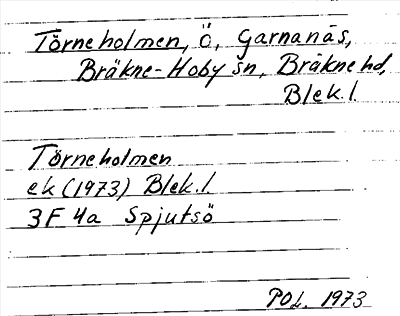 Törneholmen, Ö, Garnanäs,
Bräkne-Hoby sn, Bräkne hd,
Blek. l.
Törneholmen
ek (1973) Blek. l.
3F 4a Spjutsö
POL. 1973